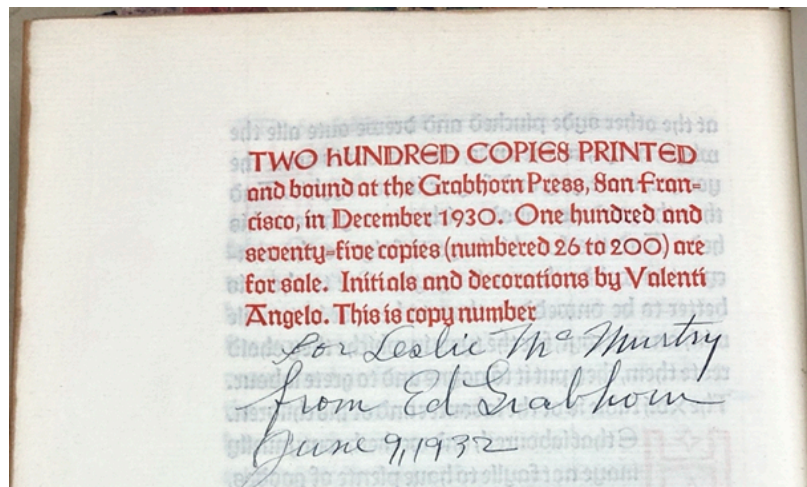 TWO hUNDRED COPIES PRINTED
and bound at the Grabhorn Press, San Fran=
cisco, in December 1930. One hundred and
seventy=five copies (numbered 26 to 200) are
for sale. Initials and decorations by Valenti
Angelo. This is copy number
for Leslie McMurtry
from Ed Grabhorn
June 9, 1932